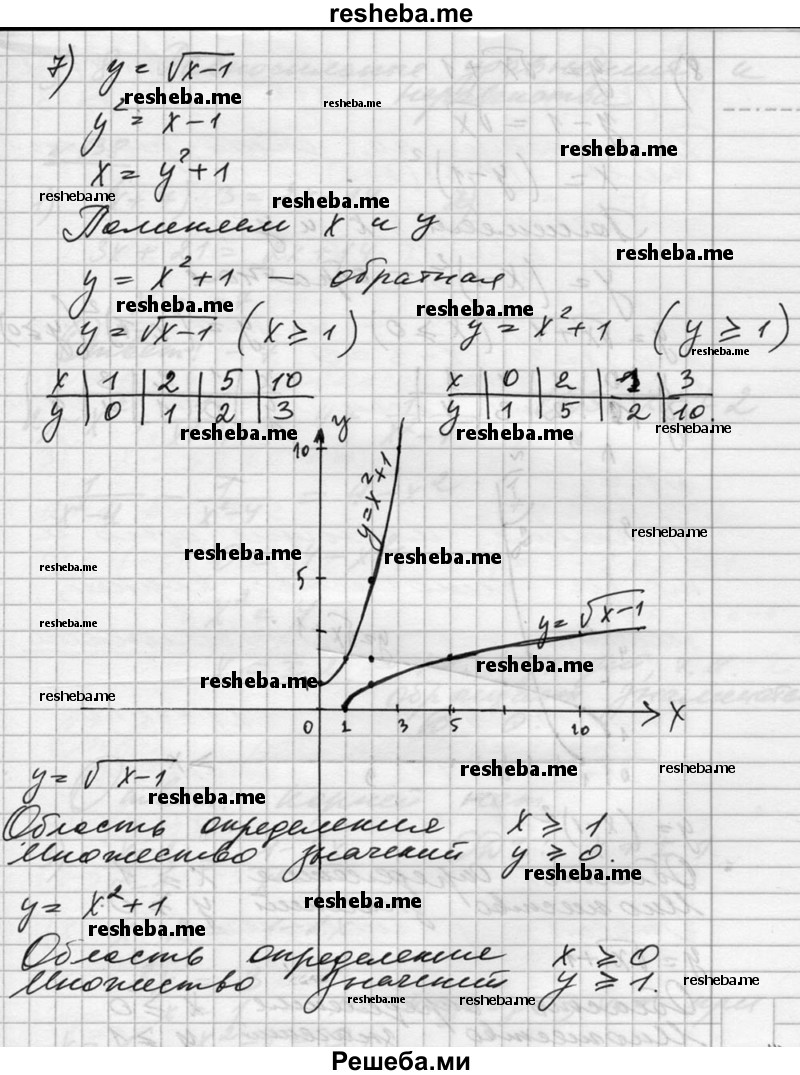 resheba.me
7) y = √x-1
resheba.me resheba.me
y² = x-1
resheba.me
x = y²+1
resheba.me resheba.me
Поменяем x и y
resheba.me
y = x²+1 — обратная
resheba.me resheba.me
y = √x-1 (x ⩾ 1) y = x²+1 (y ⩾ 1)
resheba.me
x | 1 | 2 | 5 | 10 x | 0 | 2 | 1 | 3
y | 0 | 1 | 2 | 3 y | 1 | 5 | 2 | 10
resheba.me resheba.me resheba.me
y
10
y=x²+1
resheba.me
resheba.me resheba.me
resheba.me
5
resheba.me
y= √x-1
resheba.me
resheba.me
1
resheba.me
0 1 3 5 10 x
y= √x-1
resheba.me resheba.me
resheba.me
Область определения x ⩾ 1
Множество значений y ⩾ 0.
resheba.me
y= x²+1
resheba.me
resheba.me
Область определение x ⩾ 0
Множество значений y ⩾ 1.
resheba.me
resheba.me resheba.me
Решеба.ми